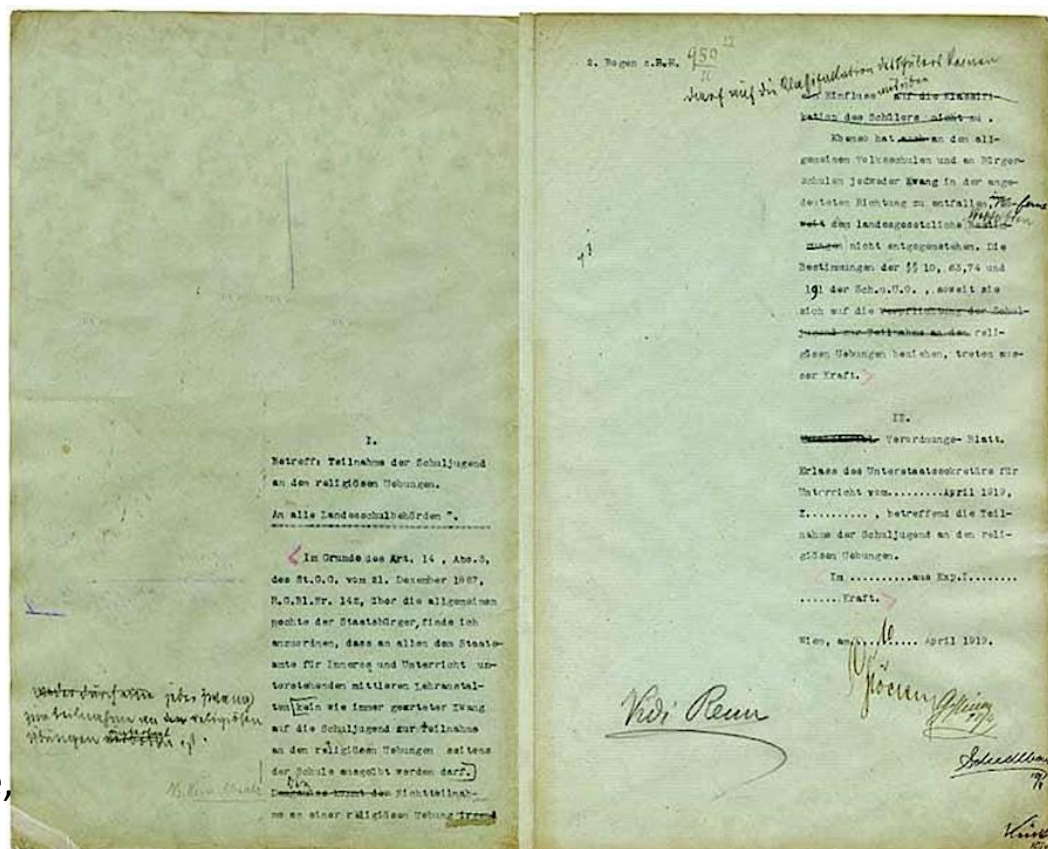 I.
Betreff: Teilnahme der Schuljugend
an den religiösen Uebungen.
An alle Landesschulbehörden ".
Im Grunde des Art. 14 , Abs.3,
des St.G.G. vom 21. Dezember 1867,
R.G.Bl.Nr. 142, über die allgemeinen
Rechte der Staatsbürger, finde ich
anzuordnen, dass an allen dem Staats-
amte für Inneres und Unterricht un-
terstehenden mittleren Lehranstal-
ten kein wie immer gearteter Zwang
auf die Schuljugend zur Teilnahme
an den religiösen Uebungen seitens
der Schule ausgeübt werden darf.
kommt dem Nichtteilnah-
me an einer religiösen Uebung irgend
jeder Zwang
zur Teilnahme an den religiösen
Übungen ist.
,
2. Bogen z.B.H. 950
darf auf die Klassifikation des Schülers keinen
Einfluss auf die Klassifi-
kation des Schülers nicht zu .
Ebenso hat auch an den all-
gemeinen Volksschulen und an Bürger-
schulen jedweder Zwang in der ange-
deuteten Richtung zu entfallen,
weit dem landesgesetzliche Bestim-
mungen nicht entgegenstehen. Die
Bestimmungen der §§ 10, 63,74 und
191 der Sch.u.U.O. , soweit sie
sich auf die Verpflichtung der Schul-
jugend zur Teilnahme an den reli-
giösen Uebungen beziehen, treten aus-
ser Kraft.
II.
Verordnungs- Blatt.
Erlass des Unterstaatssekretärs für
Unterricht vom.........April 1919,
Z.........., betreffend die Teil-
nahme der Schuljugend an den reli-
giösen Uebungen.
Im ..........aus Exp.I........
......Kraft.
Wien, am 10 April 1919.